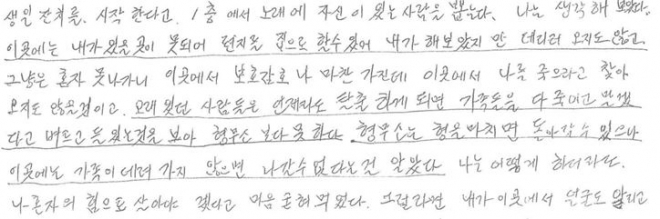 생일 잔치를. 시작 한다고. 1층 에서 노래에 자신이 있는 사람을 뽑는다. 나는 생각 해 보았다.
이곳에는 내가 있을 곳이 못되어 런지를 집으로 할수 있어 내가 해보았지 만 데리러 오지도 않고.
그냥은 혼자 못나가니 이곳에서 보호감호나 마찬 가진데 이곳에서 나를 죽으라고 찾아
오지도 않을것이고. 오래 있던 사람들은 언제라도 탈출 하게 되면 가족들을 다 죽이고 말겠
다고 벼르고 들 있는것을 보아 형무소 보다 못 하다. 형무소는 형을 마치면 돌아갈 수 있으나
이곳에는 가족이 데려 가지 않으면 나갈수 없다는 걸 알았다 나는 어떻게 하더라도.
나 혼자의 힘으로 살아야 겠다고 마음 굳혀 먹었다. 그럴라면 내가 이곳에서 연고도 알리고